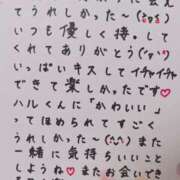 てうれしかった〜
いつも優しく待。して
くれてありがとう
いっぱいキスしてイチャイチャ
できて楽しかったです♡
ハルくんに「かわいい」
ってほめられてすごく
うれしかった〜(^^)また
一緒に気持ちいいこと
しようね♡またお会いでき